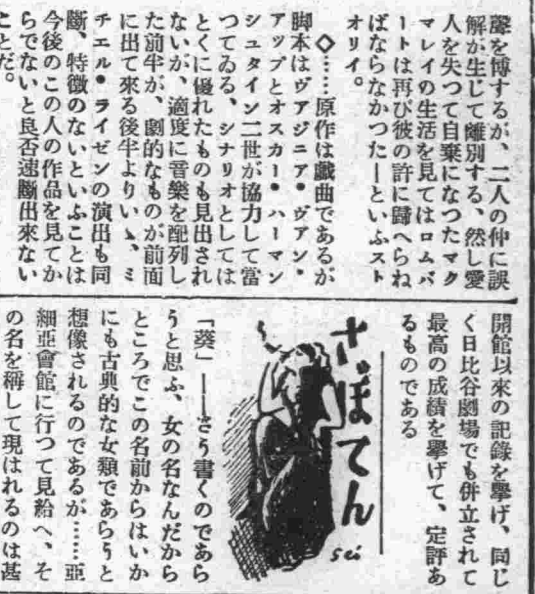 聲を博するが、二人の仲に誤
解が生じて離別する、然し愛
人を失つて自棄になつたマク
マレイの生活を見てはロムバ
ートは再び彼の許に歸へらね
ばならなかつた―といふスト
オリイ。
◇……原作は戲曲であるが
脚本はヴアジニア・ヴアン・
アツプとオスカー・ハーマン
シユタイン二世が協力して當
つてゐる、シナリオとしては
とくに優れたものも見出され
ないが、適度に音樂を配列し
た前半が、劇的なものが前面
に出て來る後半よりいゝ、ミ
チエル・ライゼンの演出も同
斷、特徴のないといふことは
今後のこの人の作品を見てか
らでないと良否速斷出來ない
ことだ。
開館以來の記録を擧げ、同じ
く日比谷劇場でも併立されて
最高の成績を擧げて、定評あ
るものである
さぼてん
sei
「葵」――さう書くのであら
うと思ふ、女の名なんだから
ところでこの名前からはいか
にも古典的な女類であらうと
想像されるのであるが……亞
細亞會館に行つて見給へ、そ
の名を稱して現はれるのは甚